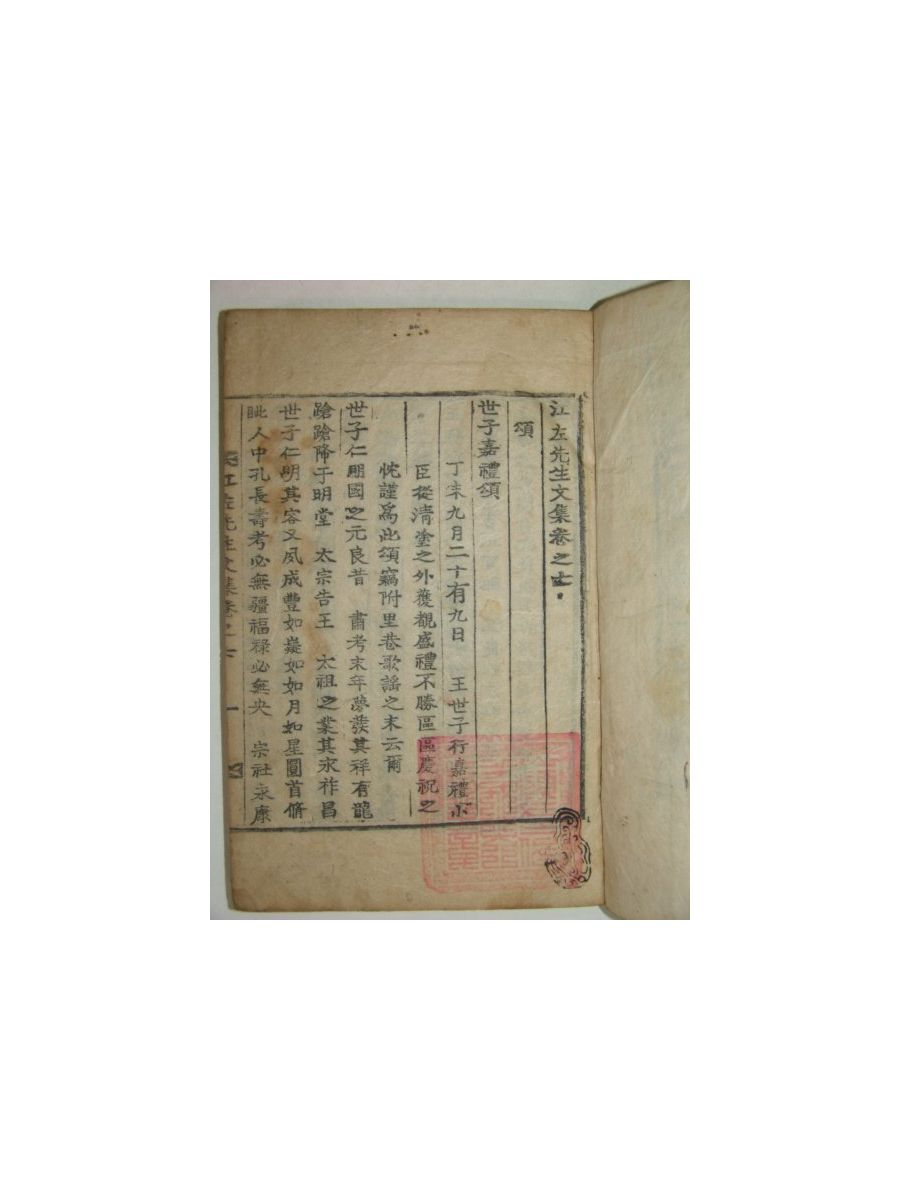 江左先生文集卷之七
頌
世子嘉禮頌
丁未九月二十有九日 王世子行嘉禮小
臣從淸塗之外獲覩盛禮不勝區區慶祝之
忱謹爲此頌竊附里巷歌謠之末云爾
世子仁明國之元良昔 肅考末年夢發其祥有龍
蹌蹌降于明堂 太宗告王 太祖之業其永祚昌
世子仁明其容又夙成豐如嶷如如月如星圓首脩
眦人中孔長壽考必無疆福祿必無央 宗社永康
江左先生文集卷之七 一